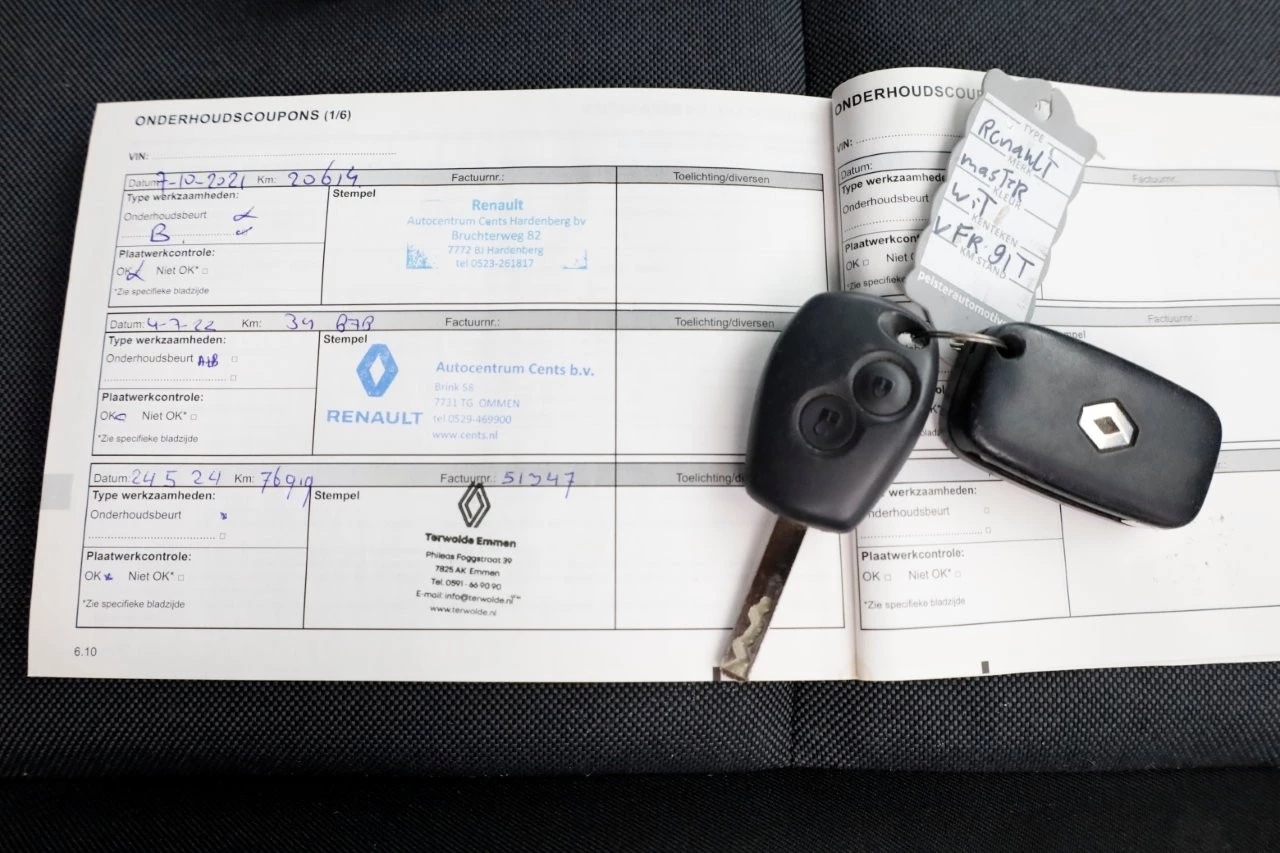 ONDERHOUDSCOUPONS (1/6)
VIN:
Datum: 7-10-2021 Km: 20619 Factuurnr.: Toelichting/diversen
Type werkzaamheden: Stempel
Onderhoudsbeurt
B
Plaatwerkcontrole:
OK Niet OK*
*Zie specifieke bladzijde
Renault
Autocentrum Cents Hardenberg bv
Bruchterweg 82
7772 BJ Hardenberg
tel 0523-261817
Datum: 4-7-22 Km: 34 878 Factuurnr.: Toelichting/diversen
Type werkzaamheden: Stempel
Onderhoudsbeurt A+B
Plaatwerkcontrole:
OK Niet OK*
*Zie specifieke bladzijde
RENAULT
Autocentrum Cents b.v.
Brink 58
7731 TG OMMEN
tel 0529-469900
www.cents.nl
Datum: 24 5 24 Km: 76919 Factuurnr.: 51347
Type werkzaamheden: Stempel
Onderhoudsbeurt
Plaatwerkcontrole:
OK Niet OK*
*Zie specifieke bladzijde
Terwolde Emmen
Phileas Foggstraat 39
7825 AK Emmen
Tel. 0591-66 90 90
E-mail: info@terwolde.nl
www.terwolde.nl
6.10
ONDERHOUDSCOUP
VIN:
Datum: Factuurnr.
Type werkzaamhede
Onderhoudsbeurt
Plaatwerkcon
OK Niet
*Zie specifieke
Factuurnr.:
werkzaamheden:
nderhoudsbeurt
Plaatwerkcontrole:
OK Niet OK*
*Zie specifieke bladzijde
TYPE
RENAULT
MERK
master
KLEUR
WIT
KENTEKEN
VFR-91T
KM STAND
pelsterautomotive